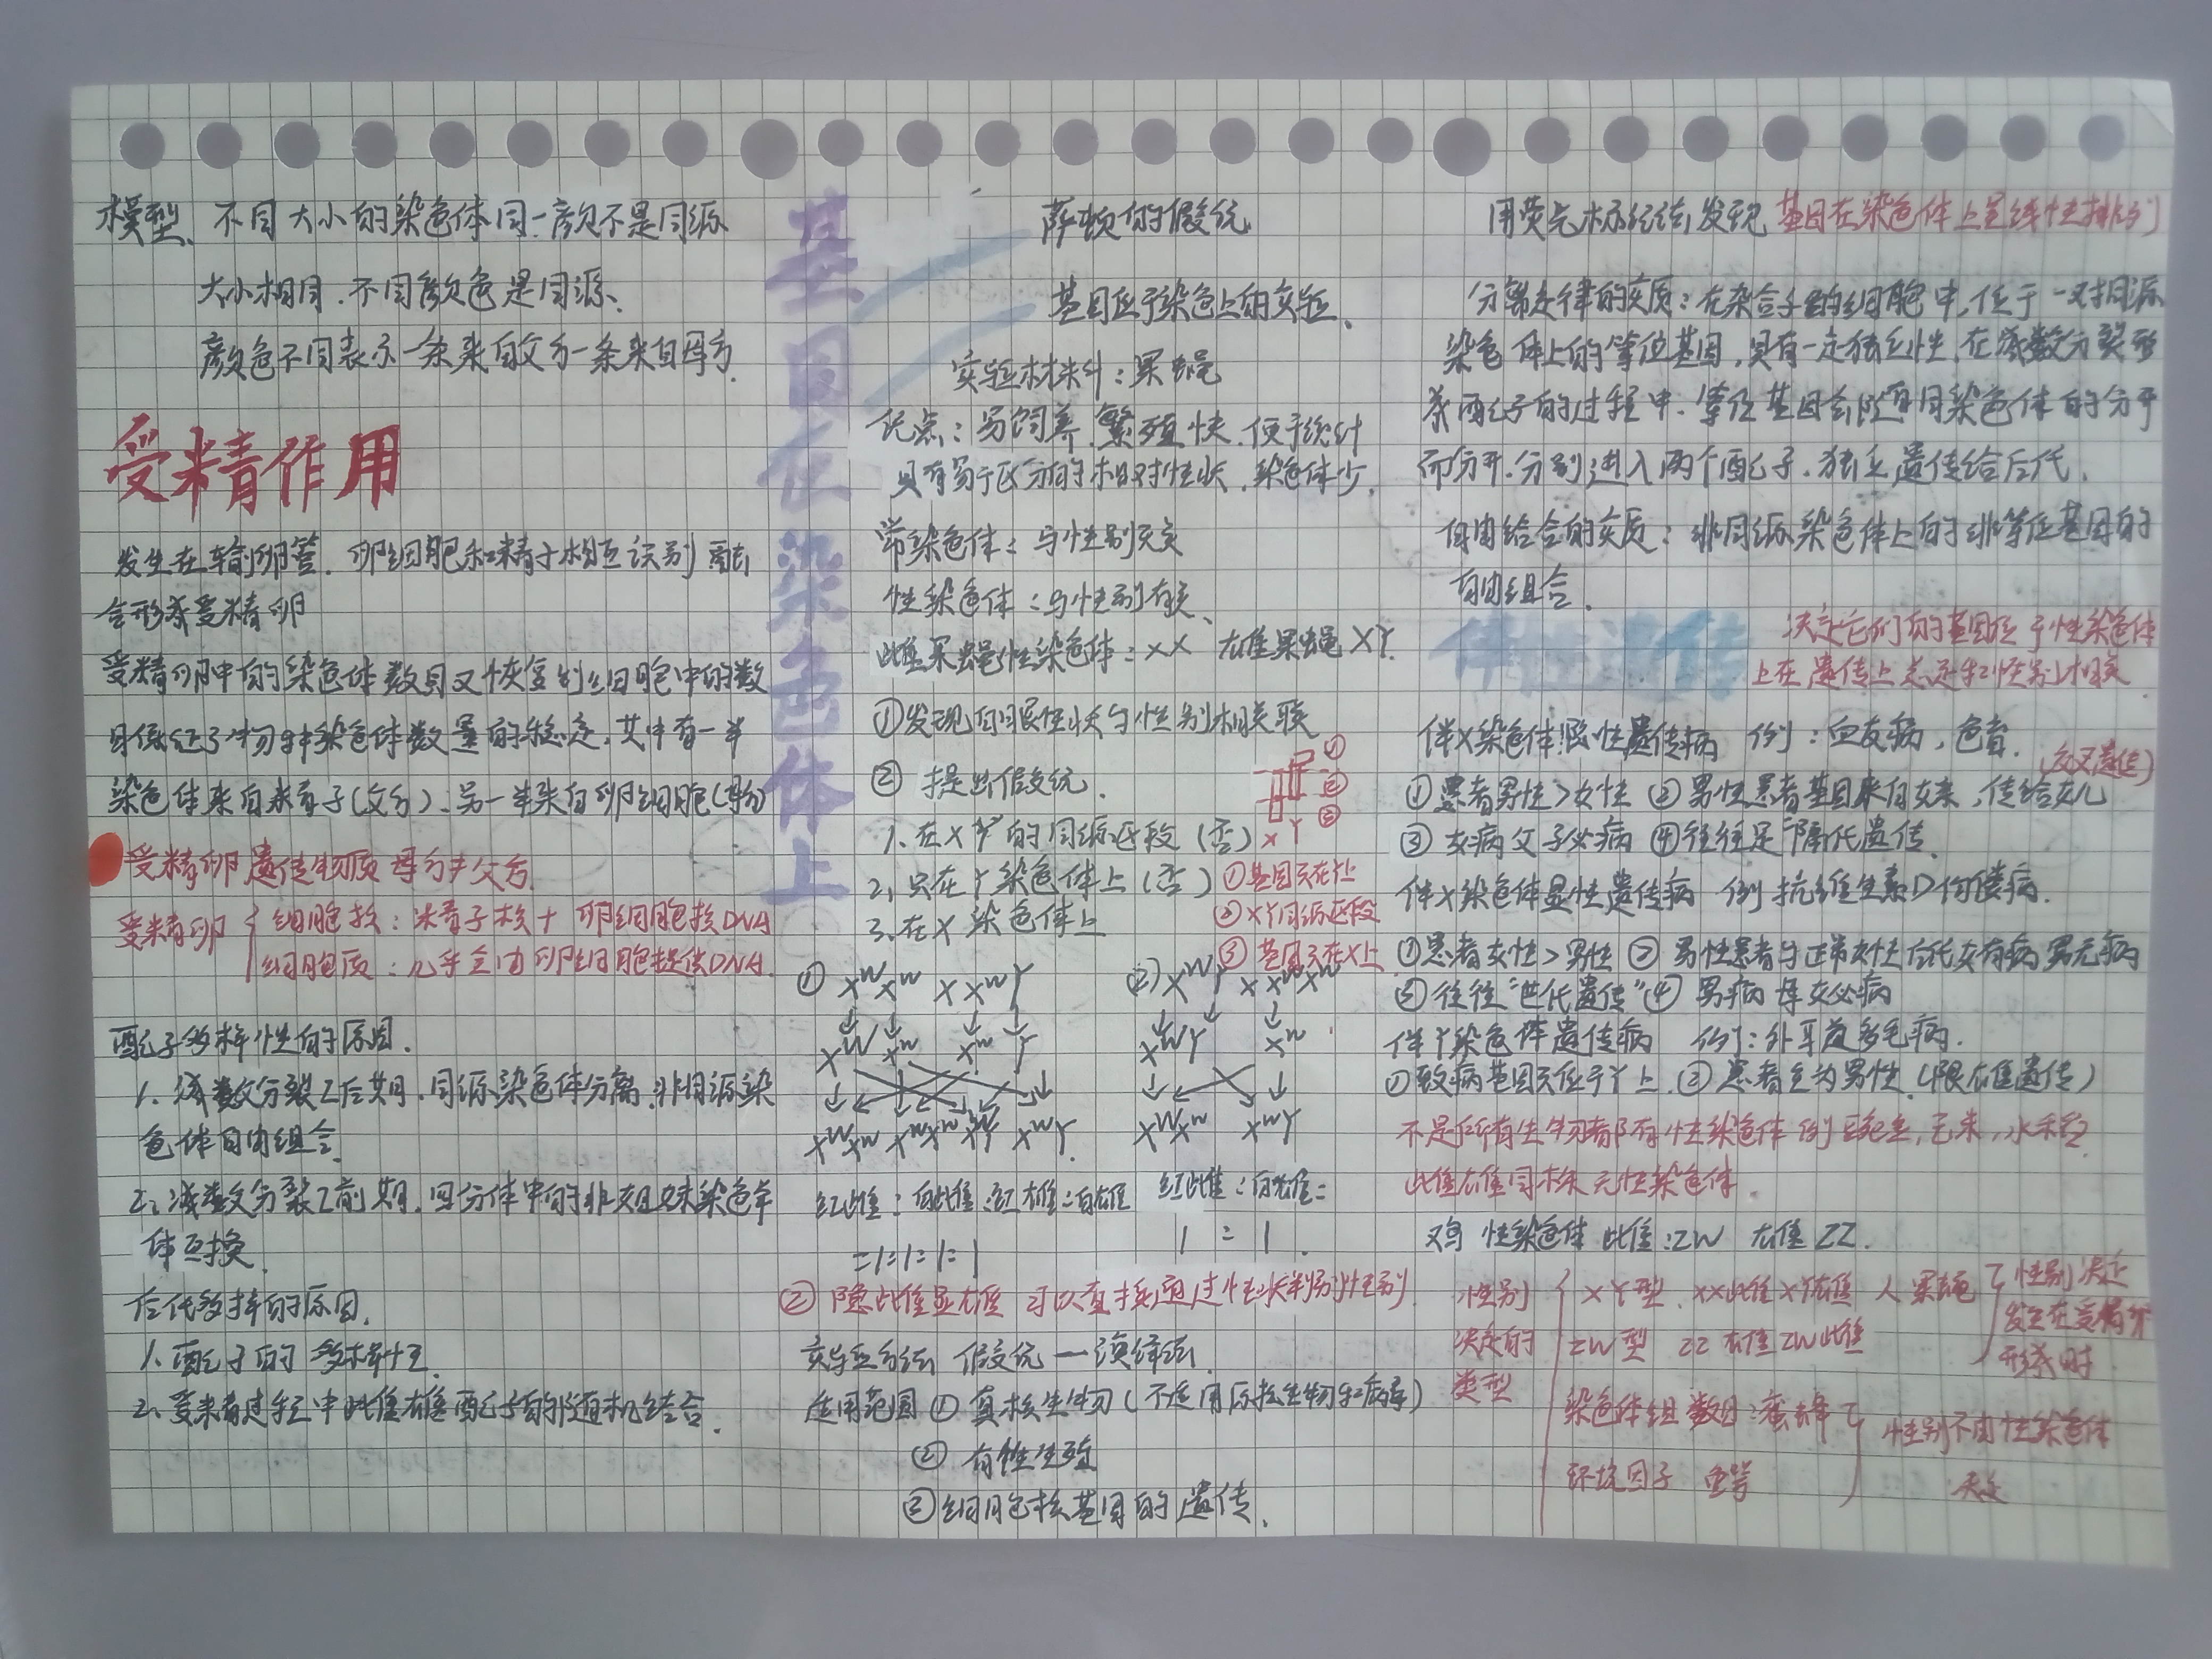 模型、不同大小的染色体同一颜不是同源
大小相同.不同颜色是同源、
颜色不同表示一条来自父方一条来自母方.
受精作用
发生在输卵管.卵细胞和精子相互识别融
合形成受精卵
受精卵中的染色体数目又恢复到细胞中的数
目保证了物种染色体数量的稳定,其中有一半
染色体来自精子(父方)、另一半来自卵细胞(母方)
受精卵遗传物质 母方≠父方.
受精卵 细胞核:精子核+卵细胞核DNA
细胞质:几乎全由卵细胞提供DNA.
配子多样性的原因.
1.减数分裂I后期.同源染色体分离.非同源染
色体自由组合.
2.减数分裂I前期.四分体中的非姐妹染色单
体互换.
后代多样的原因.
1.配子的多样性
2.受精过程中雌雄配子的随机结合.
基因在染色体上
萨顿的假说
基因位于染色上的实验、
实验材料:果蝇
优点:易饲养.繁殖快.便于统计
具有易于区分的相对性状.染色体少.
常染色体:与性别无关
性染色体:与性别有关、
雌果蝇性染色体:XX 雄果蝇XY.
①发现白眼性状与性别相关联
②提出假说.
1.在XY的同源区段(否)
2.只在Y染色体上(否)
3.在X染色体上
① ② ③
X Y
①基因只在Y上
②XY同源区段
③基因只在X上
① X^W X^w X X^w Y
X^W X^w X^w Y
X^W X^w X^w X^w X^W Y X^w Y.
红雌:白雌:红雄:白雄
=1:1:1:1
(2) X^W Y X X^w X^w
X^W Y X^w
X^W X^w X^w Y
红雌:白雄=
1:1.
② 隐雌显雄 可以直接通过性状判别性别
实验方法 假说一演绎法.
适用范围①真核生物(不适用原核生物和病毒)
②有性生殖
③细胞核基因的遗传.
用荧光标记法发现 基因在染色体上呈线性排列
分离定律的实质:在杂合子的细胞中,位于一对同源
染色体上的等位基因,具有一定独立性.在减数分裂形
成配子的过程中.等位基因会随同染色体的分开
而分开.分别进入两个配子.独立遗传给后代.
自由给合的实质:非同源染色体上的非等位基因的
自由组合.
伴性遗传 决定它们的基因位于性染色体
上在遗传上总是和性别相关
伴X染色体隐性遗传病 例:血友病,色盲.(交叉遗传)
①患者男性>女性 ②男性患者基因来自女亲,传给女儿
③女病父子必病 ④往往是隔代遗传.
伴X染色体显性遗传病 例 抗维生素D佝偻病.
①患者女性>男性 ②男性患者与正常女性后代女有病男无病
③往往"世代遗传" ④男病母女必病
伴Y染色体遗传病 例:外耳道多毛病.
①致病基因只位于Y上.②患者全为男性.(限雄遗传)
不是所有生物都有性染色体 例豌豆,玉米,水稻.
雌雄同株无性染色体.
鸡 性染色体 雌:ZW 雄ZZ.
性别决定的类型
XY型.XX雌XY雄 人 果蝇
ZW型 ZZ雄ZW雌
性别决定发生在受精卵形成时
染色体组数目:蜜蜂
环境因子
性别不由性染色体决定